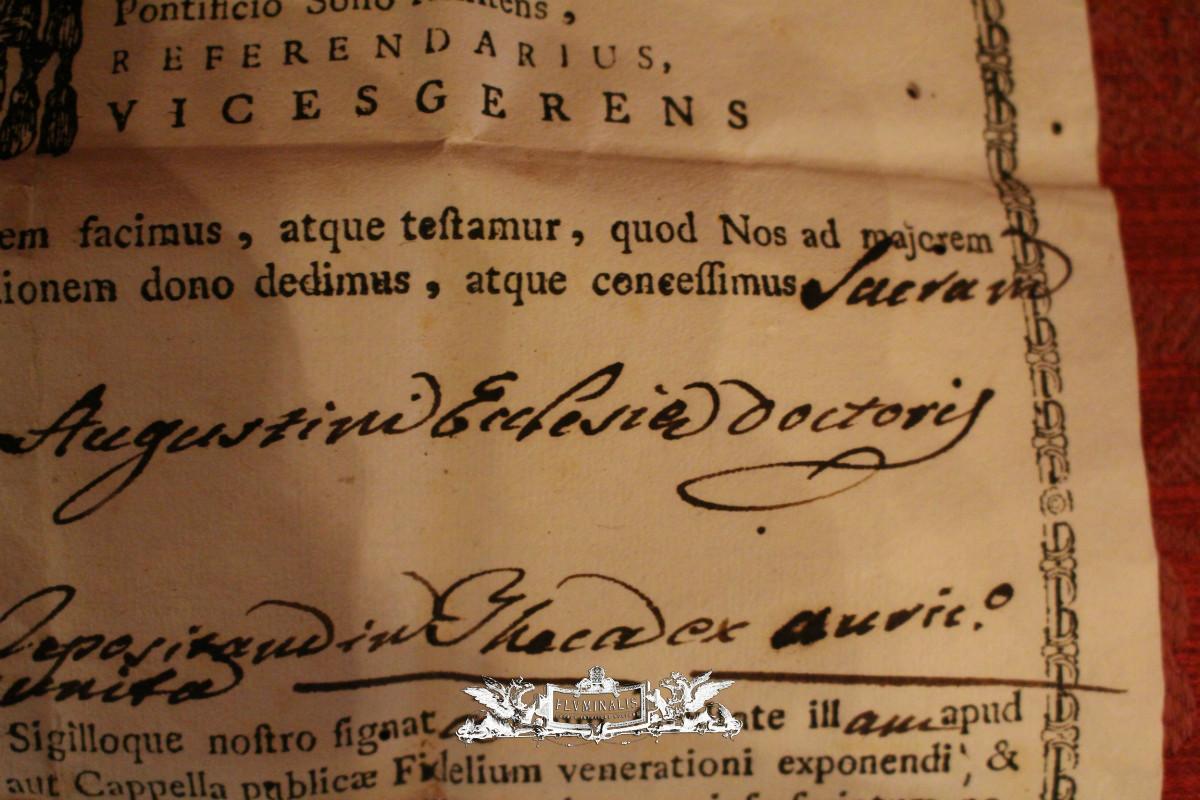 Pontificio Solio
REFERENDARIUS,
VICESGERENS
em facimus, atque teſtamur, quod Nos ad majorem
ionem dono dedimus, atque conceſſimus Sacram
Augustini Ecclesiæ doctoris
repositam in Theca ex auric.º
unita
Sigilloque noſtro ſignat ate illam apud
aut Cappella publicæ Fidelium venerationi exponendi; &
FLVMINALIS